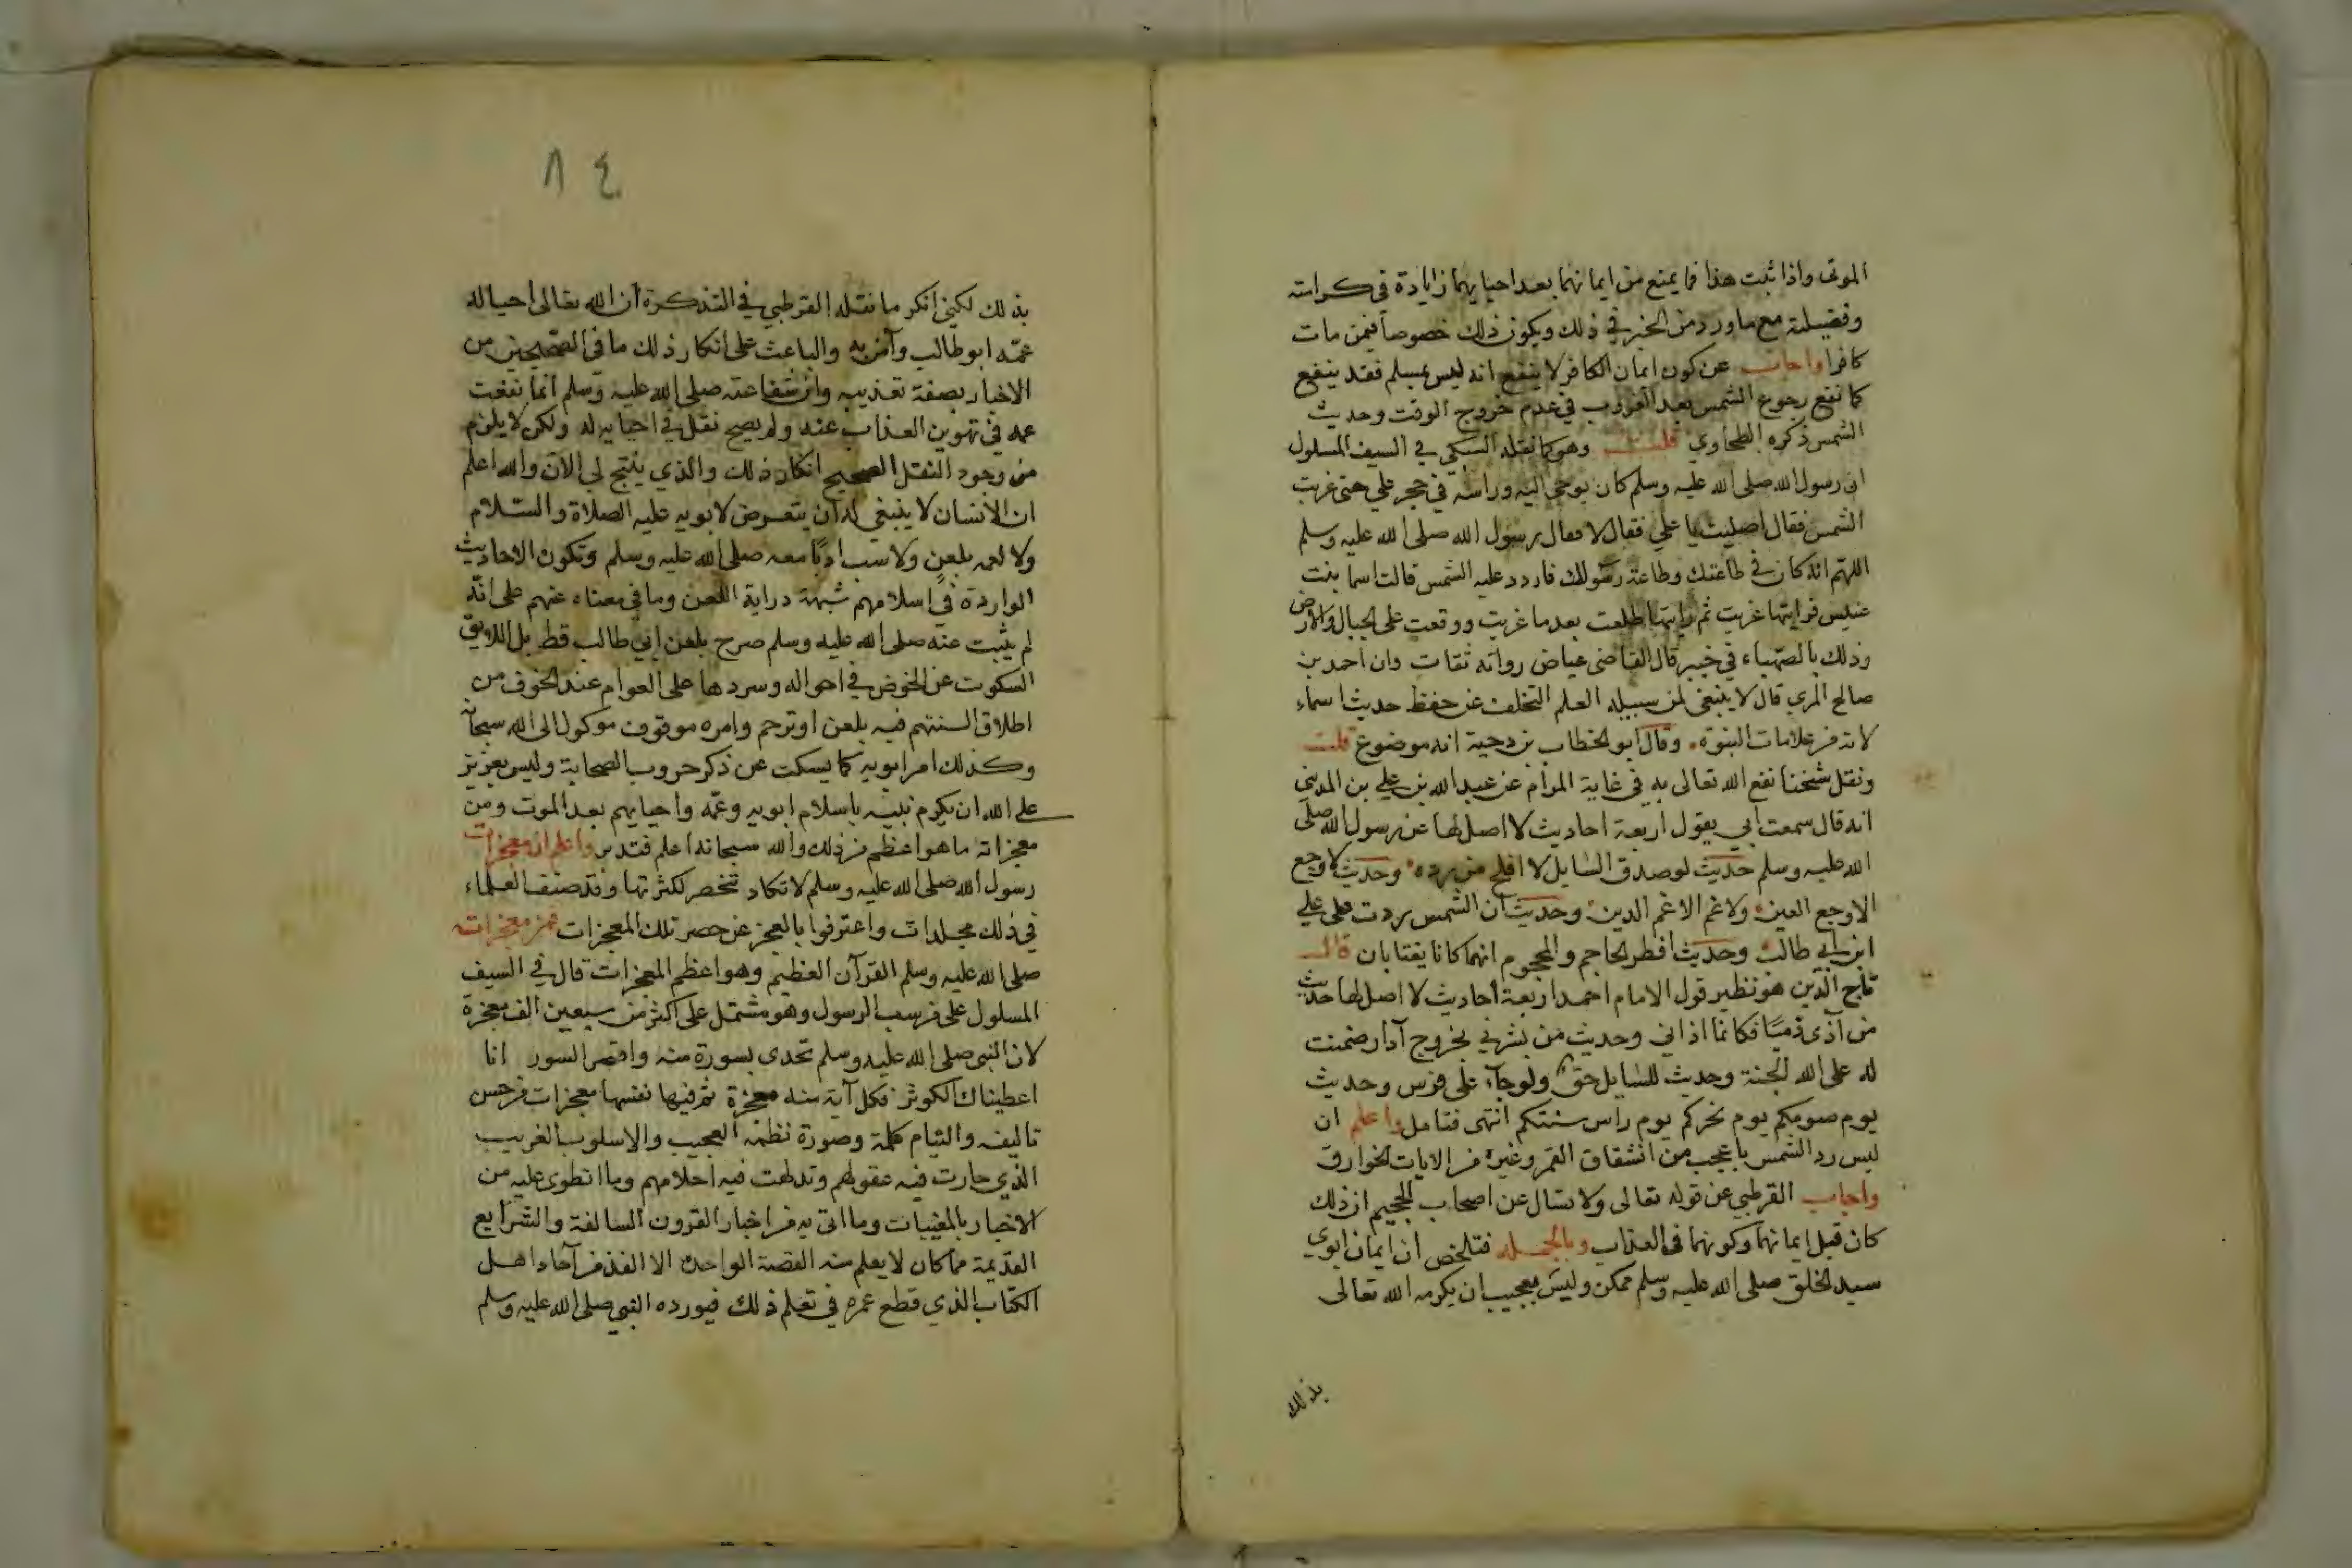 الموتى واذا ثبت هذا فما يمنع من ايمانهما بعد احيايهما زيادة في كرامته
وفضيلته مع ماورد من الخبر في ذلك ويكون ذلك خصوصا فيمن مات
كافرا واجاب عن كون ايمان الكافر لا ينفع انه ليس بمسلم فقد ينفع
كما نفع رجوع الشمس بعد الغروب في عدم خروج الوقت وحديث
الشمس ذكره الطحاوي قلت وهو كما نقله السبكي في السيف المسلول
ان رسول الله صلى الله عليه وسلم كان يوحى اليه وراسه في حجر علي حتى غربت
الشمس فقال اصليت يا علي فقال لا فقال رسول الله صلى الله عليه وسلم
اللهم انه كان في طاعتك وطاعة رسولك فاردد عليه الشمس قالت اسما بنت
عميس فرايتها غربت ثم رايتها طلعت بعد ما غربت ووقعت على الجبال والارض
وذلك بالصهباء في خيبر قال القاضى عياض رواته ثقات وان احمد بن
صالح المري قال لا ينبغى لمن سبيله العلم التخلف عن حفظ حديث اسماء
لانه من علامات النبوة. وقال ابو الخطاب بن دحية انه موضوع قلت
ونقل شيخنا نفع الله تعالى به في غاية المرام عن عبد الله بن علي بن المديني
انه قال سمعت ابي يقول اربعة احاديث لا اصل لها عن رسول الله صلى
الله عليه وسلم حديث لو صدق السايل لا افلح من رده وحديث لا وجع
الا وجع العين ولا غم الا غم الدين وحديث ان الشمس ردت على علي
ابن ابي طالب وحديث افطر الحاجم والمحجوم انهما كانا يغتابان قال
تاج الدين هو نظير قول الامام احمد اربعة احاديث لا اصل لها حديث
من آذى ذميا فكانما اذاني وحديث من بشرني بخروج آدار ضمنت
له على الله الجنة وحديث للسايل حق ولو جاء على فرس وحديث
يوم صومكم يوم نحركم يوم راس سنتكم انتهى فتامل واعلم ان
ليس رد الشمس باعجب من انشقاق القمر وغيره من الايات الخوارق
واجاب القرطبي عن قوله تعالى ولا تسال عن اصحاب الجحيم ان ذلك
كان قبل ايمانهما وكونهما في العذاب وبالجملة فتلخص ان ايمان ابوي
سيد الخلق صلى الله عليه وسلم ممكن وليس بعجيب ان يكرمه الله تعالى
بذلك
٨٤
بذلك لكنى انكر ما نقله القرطبي في التذكرة ان الله تعالى احيا له
عمّه ابو طالب وآمن به والباعث على انكار ذلك ما في الصحيحين من
الاخبار بصفة تعذيبه وان شفاعته صلى الله عليه وسلم انما نفعت
عمه في تهوين العذاب عنه ولم يصح نقل في احيايه له ولكن لا يلزم
من وجود النقل الصحيح انكار ذلك والذي ينتج لي الان والله اعلم
ان الانسان لا ينبغي له ان يتعرض لابويه عليه الصلاة والسّلام
ولا لعمه بلعن ولا سب ادبًا معه صلى الله عليه وسلم وتكون الاحاديث
الواردة في اسلامهم شبهة دراية اللعن وما في معناه عنهم على انّه
لم يثبت عنه صلى الله عليه وسلم صرح بلعن ابي طالب قط بل اللايق
السكوت عن الخوض في احواله وسردها على العوام عند الخوف من
اطلاق السنتهم فيه بلعن او ترحم وامره موقوف موكول الى الله سبحانه
وكذلك امر ابويه كما يسكت عن ذكر حروب الصحابة وليس بعزيز
على الله ان يكرم نبيه باسلام ابويه وعمّه واحيايهم بعد الموت ومن
معجزاته ما هو اعظم من ذلك والله سبحانه اعلم فتدبر واعلم ان معجزات
رسول الله صلى الله عليه وسلم لا تكاد تنحصر لكثرتها وقد صنف العلماء
في ذلك مجلدات واعترفوا بالعجز عن حصر تلك المعجزات فمن معجزاته
صلى الله عليه وسلم القرآن العظيم وهو اعظم المعجزات قال في السيف
المسلول على من سب الرسول وهو مشتمل على اكثر من سبعين الف معجزة
لان النبى صلى الله عليه وسلم تحدى بسورة منه واقصر السور انا
اعطيناك الكوثر فكل آية منه معجزة ثم فيها نفسها معجزات من حسن
تاليفه والتيام كلمة وصورة نظمه العجيب والاسلوب الغريب
الذي حارت فيه عقولهم وتدلهت فيه احلامهم وما انطوى عليه من
الاخبار بالمغيبات وما اتى به من اخبار القرون السالفة والشرايع
القديمة مما كان لا يعلم منه القصة الواحدة الا الفذ من آحاد اهل
الكتاب الذي قطع عمره في تعلم ذلك فيورده النبي صلى الله عليه وسلم